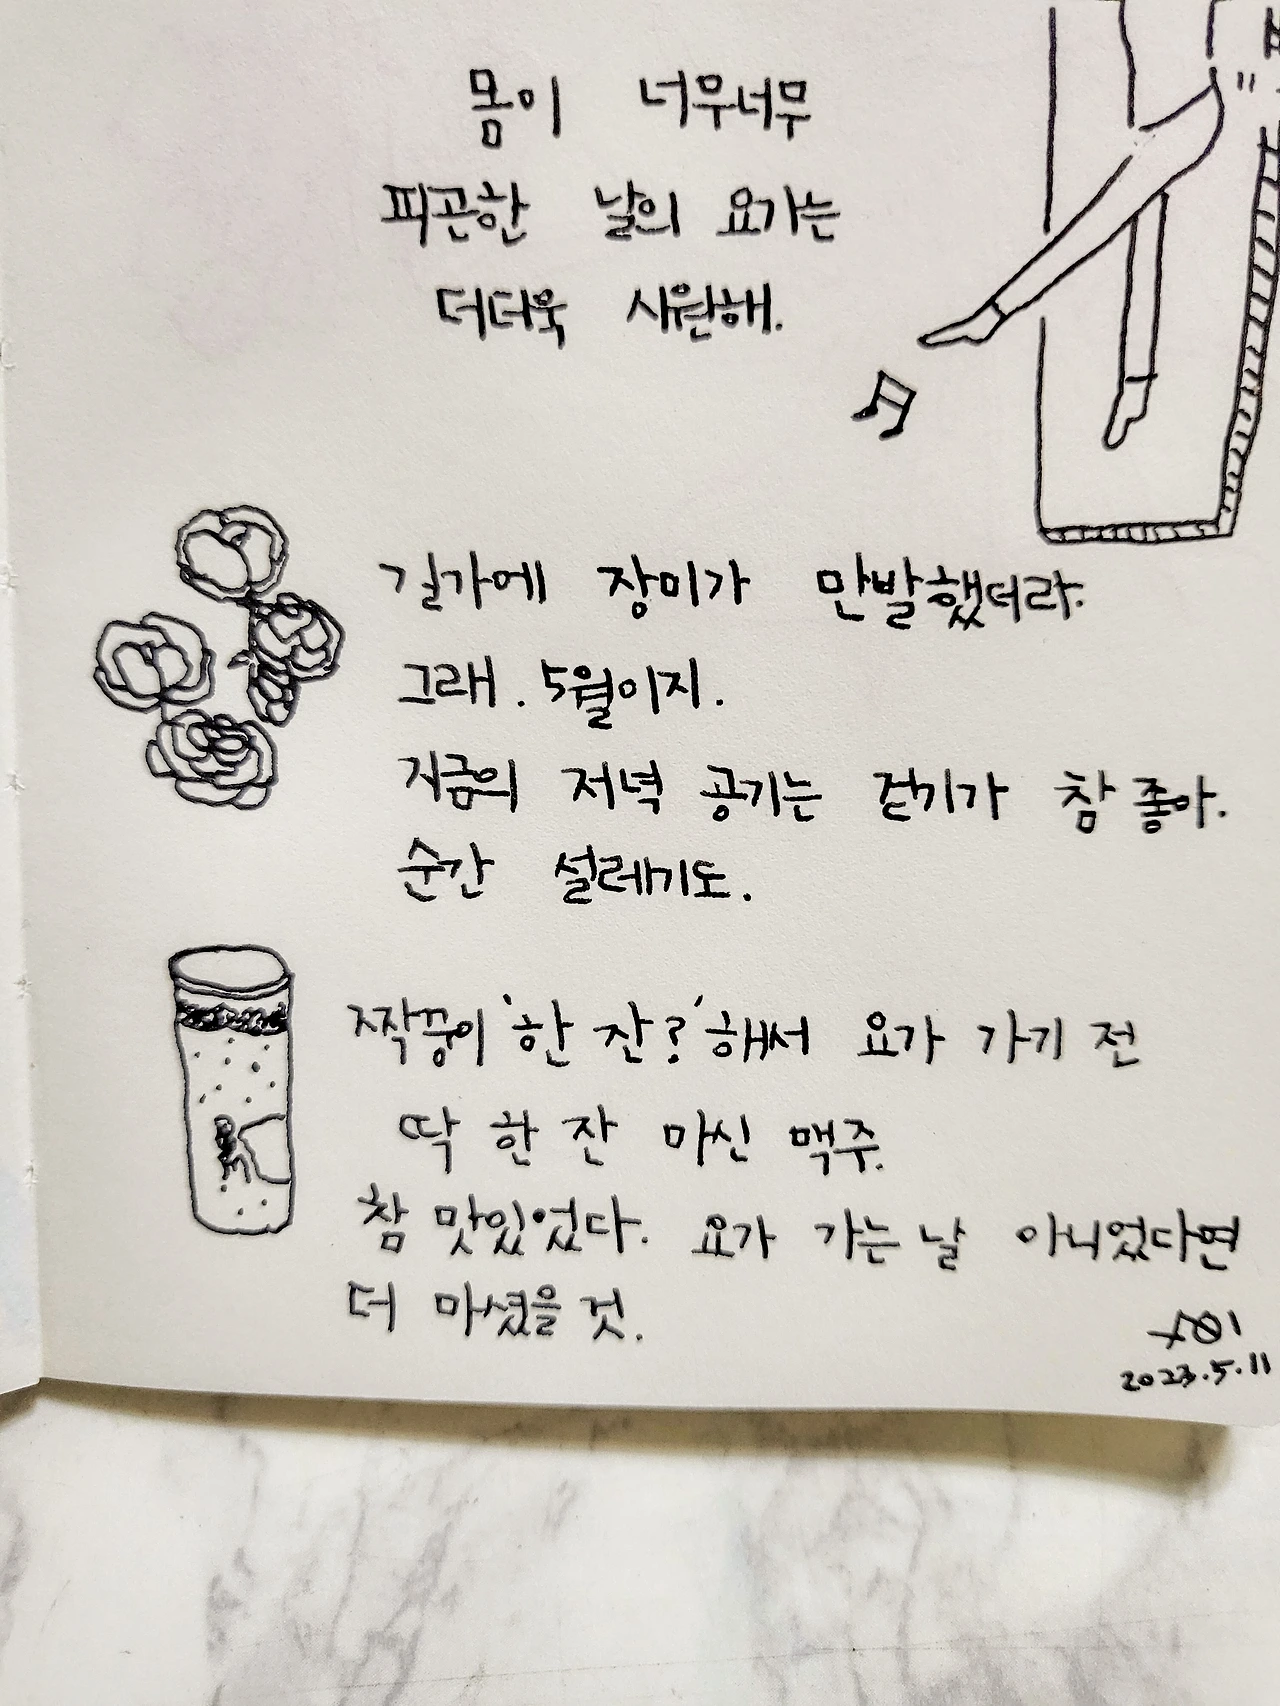 몸이 너무너무
피곤한 날의 요가는
더더욱 시원해.
길가에 장미가 만발했더라.
그래. 5월이지.
지금의 저녁 공기는 걷기가 참 좋아.
순간 설레기도.
짝꿍이 '한 잔?' 해서 요가 가기 전
딱 한 잔 마신 맥주.
참 맛있었다. 요가 가는 날 아니었다면
더 마셨을 것.
2023.5.11